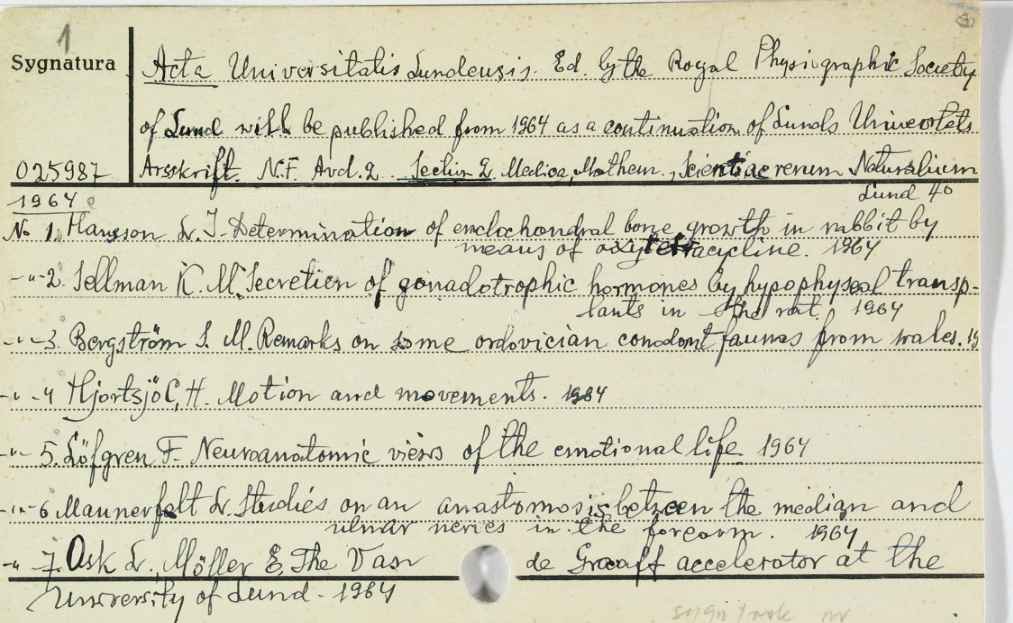 1
Sygnatura
Acta Universitatis Lundensis. Ed. by the Royal Physiographic Society
of Lund will be published from 1964 as a continuation of Lunds Universitets
025987
Arsskrift. N.F. Avd. 2. Sectio 2 Medica, Mathem., Scientiae rerum Naturalium
Lund 40
1964
No 1. Hansson L. I. Determination of enclochondral bone growth in rabbit by
means of oxytetracycline. 1964
-"- 2. Sellman K. M. Secretion of gonadotrophic hormones by hypophyseal transp-
lants in the rat. 1964
-"- 3. Bergström S. M. Remarks on some ordovician conodont faunas from wales. 19
-"- 4 Hjortsjö C, H. Motion and movements. 1964
-"- 5. Löfgren F. Neuroanatomic views of the emotional life. 1964
-"- 6 Mannerfelt L. Studies on an anastomosis between the median and
ulnar nerves in the forearm. 1964
-"- 7. Ask L., Möller E, The Van de Graaff accelerator at the
University of Lund. 1964